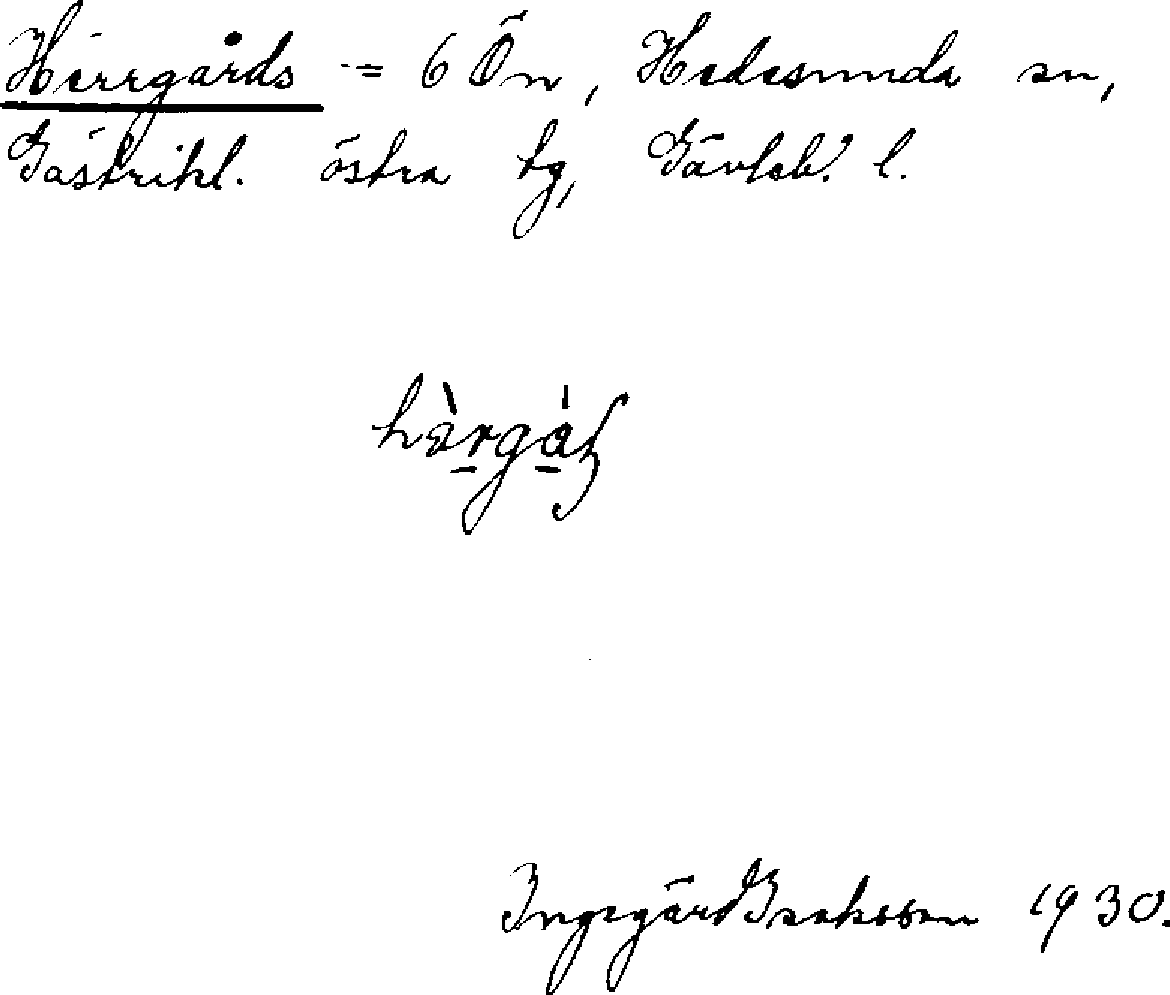 Herrgårds = 6 Ön, Hedesunda sn,
Gästrikl. östra tg, Gävleb. l.
hàrgȧʂ
Ingegärd Isaksson 1930.